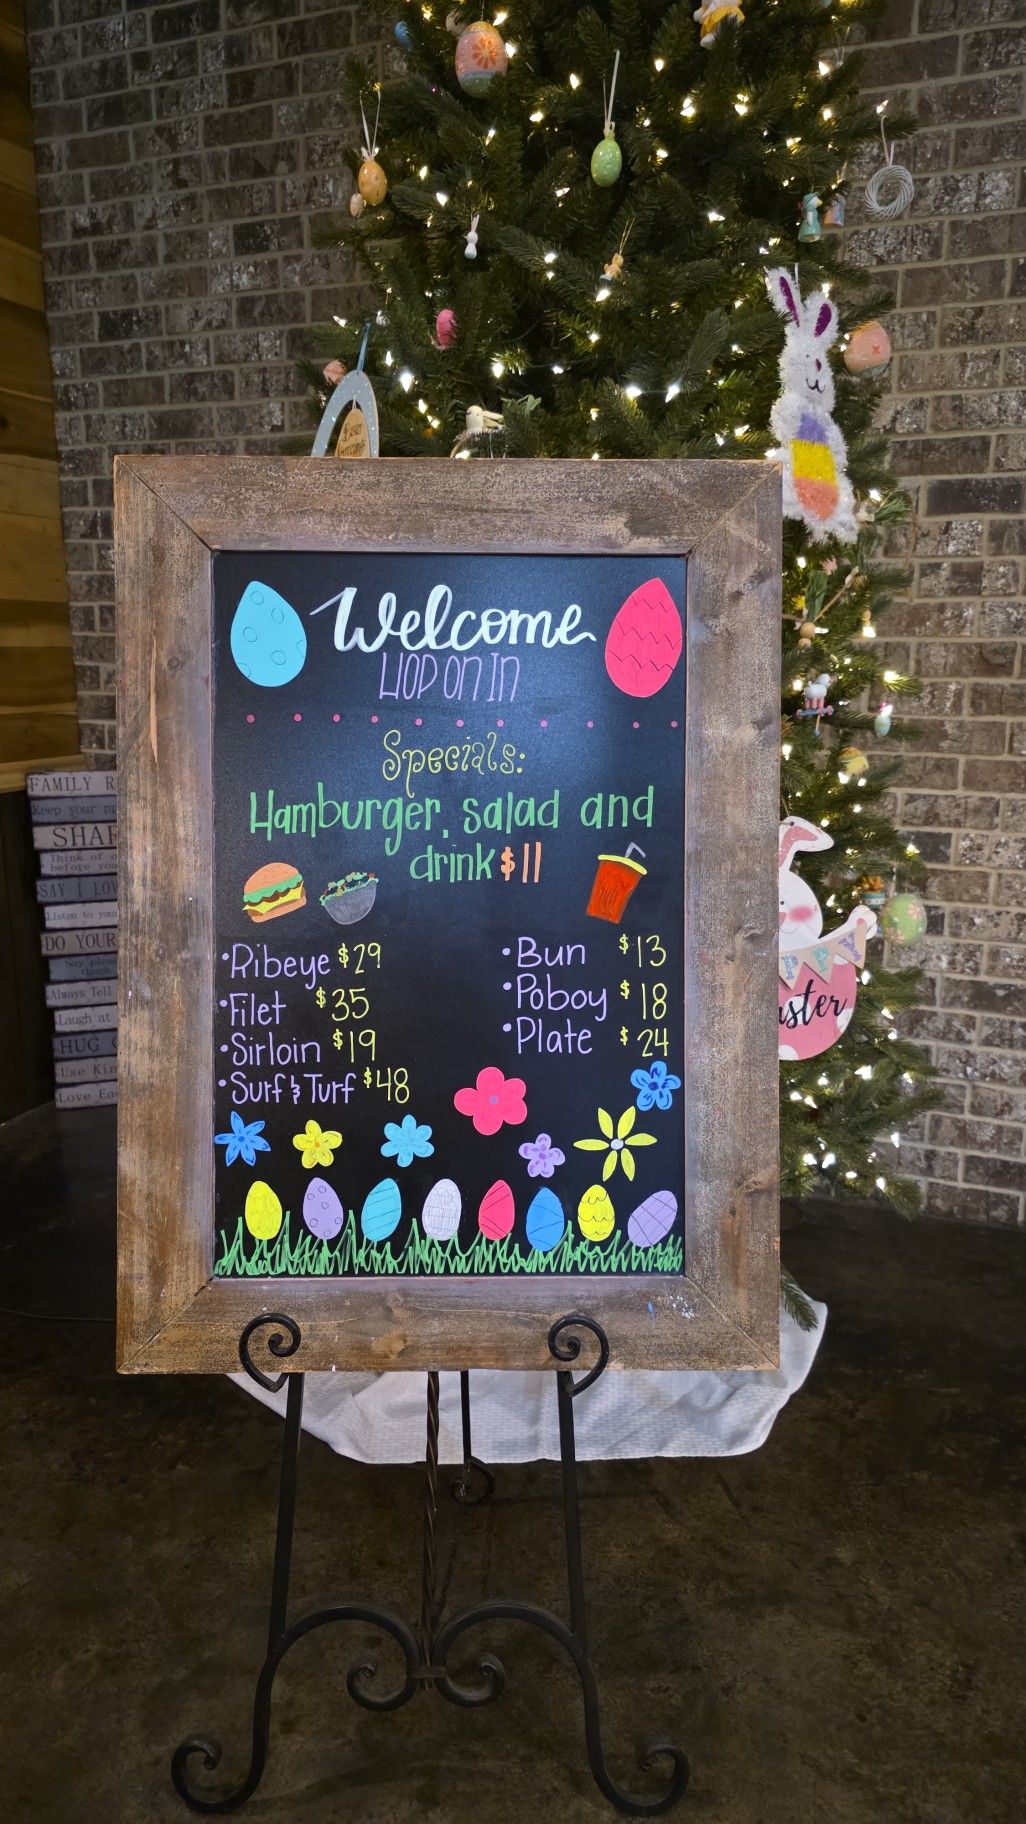 Welcome
HOP ON IN
Specials:
Hamburger, salad and
drink $11
•Ribeye $29
•Filet $35
•Sirloin $19
•Surf & Turf $48
•Bun $13
•Poboy $18
•Plate $24
Easter
FAMILY
Keep your
SHAR
Think of
before you
SAY I LOV
Listen to your
DO YOUR
Say please
thank
Always Tell
Laugh at
HUG
Use Kin
Love